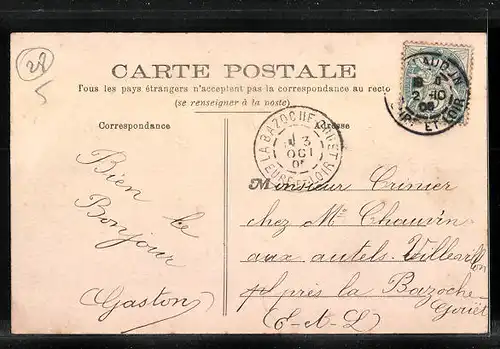 28
5
CARTE POSTALE
Tous les pays étrangers n'acceptent pas la correspondance au recto
(se renseigner à la poste)
Correspondance
Adresse
LA BAZOCHE-GOUET
3
OCT
05
EURE-ET-LOIR
2 - 10
05
EURE-ET-LOIR
Bien le
Bonjour
Gaston
Monsieur Crinier
chez Mr Chauvin
aux autels Villevillon
près la Bazoche
Gouët
(E-A-L)